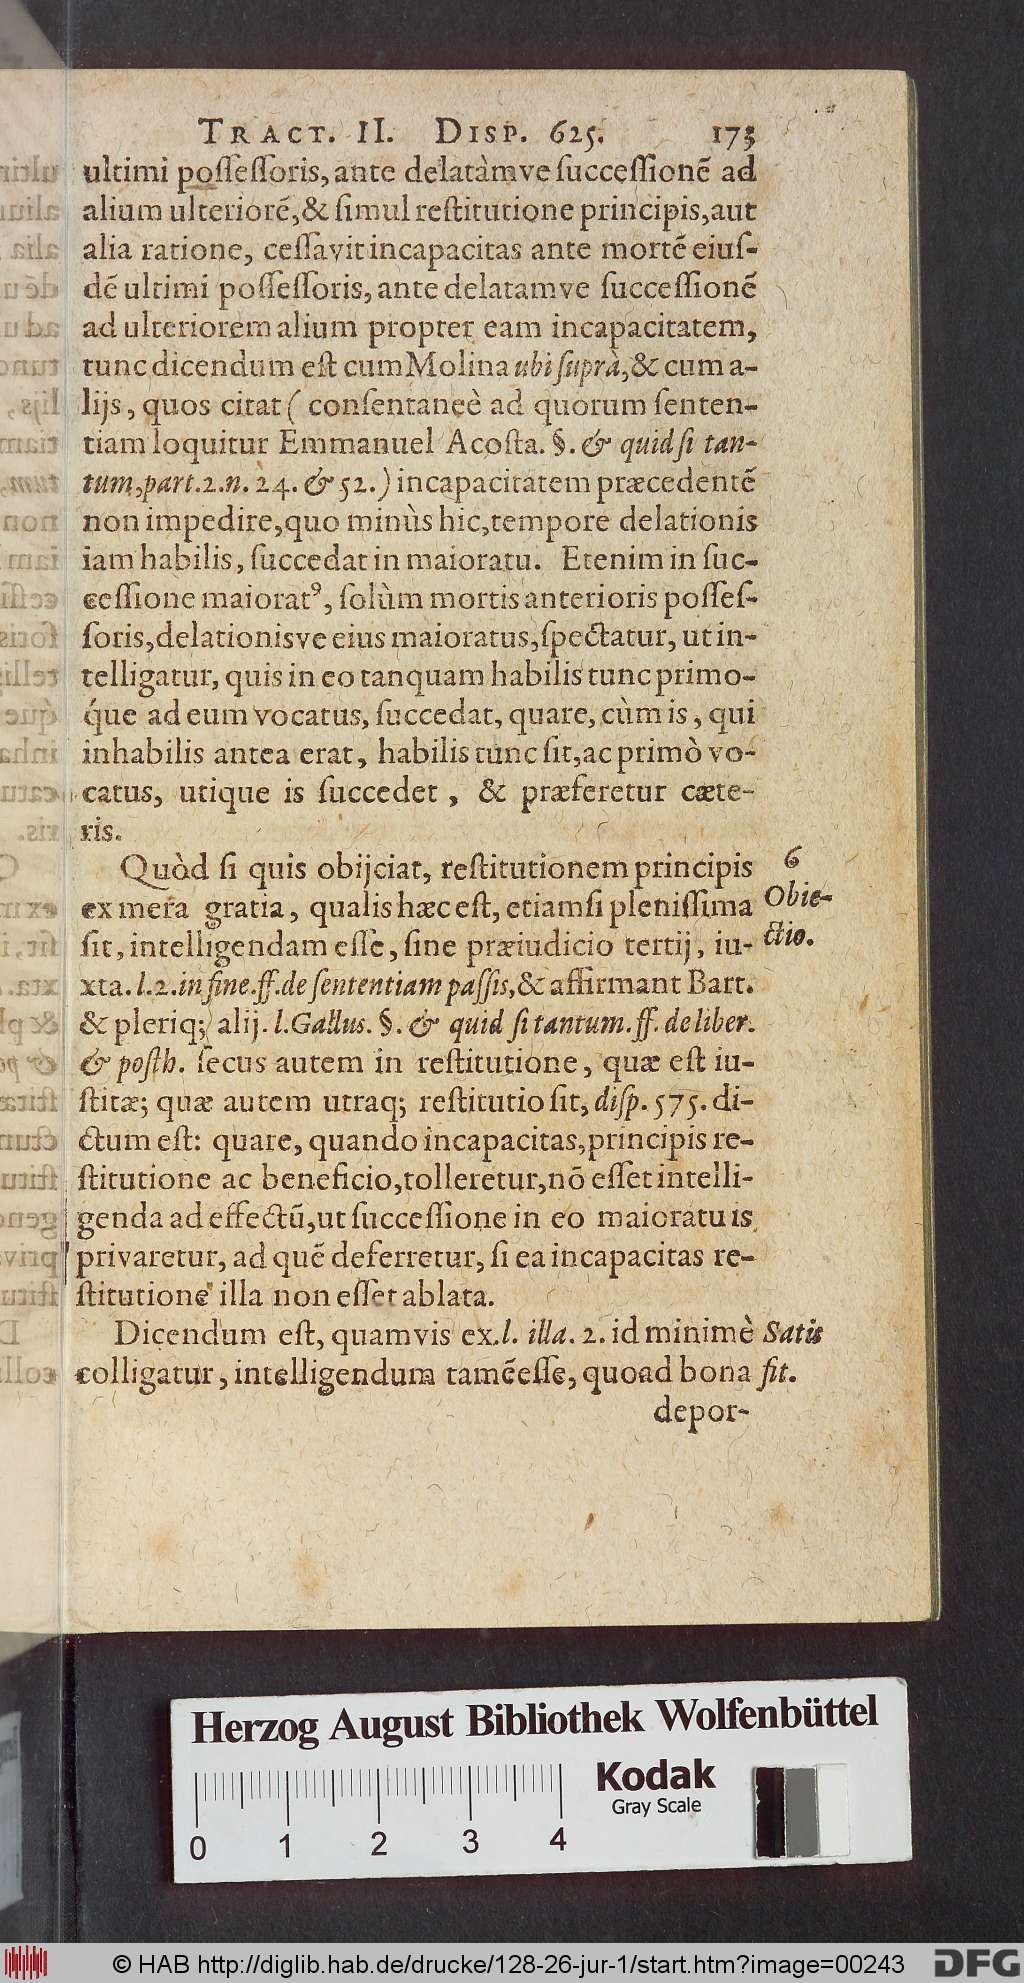 TRACT. II. DISP. 625. 173
ultimi poſſeſſoris, ante delatàmve ſucceſſionẽ ad
alium ulteriorẽ, & ſimul reſtitutione principis, aut
alia ratione, ceſſavit incapacitas ante mortẽ eiuſ-
dẽ ultimi poſſeſſoris, ante delatamve ſucceſſionẽ
ad ulteriorem alium propter eam incapacitatem,
tunc dicendum eſt cum Molina ubi ſuprà, & cum a-
lijs, quos citat ( conſentaneè ad quorum ſenten-
tiam loquitur Emmanuel Acoſta. §. & quid ſi tan-
tum, part. 2. n. 24. & 52.) incapacitatem præcedentẽ
non impedire, quo minùs hic, tempore delationis
iam habilis, ſuccedat in maioratu. Etenim in ſuc-
ceſſione maioratꝰ, ſolùm mortis anterioris poſſeſ-
ſoris, delationisve eius maioratus, ſpectatur, ut in-
telligatur, quis in eo tanquam habilis tunc primo-
q́ue ad eum vocatus, ſuccedat, quare, cùm is, qui
inhabilis antea erat, habilis tunc ſit, ac primò vo-
catus, utique is ſuccedet, & præferetur cæte-
ris.
Quòd ſi quis obijciat, reſtitutionem principis
ex mera gratia, qualis hæc eſt, etiamſi pleniſſima
ſit, intelligendam eſſe, ſine præiudicio tertij, iu-
xta. l. 2. in fine. ff. de ſententiam paſſis, & affirmant Bart.
& pleriq; alij. l. Gallus. §. & quid ſi tantum. ff. de liber.
& poſth. ſecus autem in reſtitutione, quæ eſt iu-
ſtitæ; quæ autem utraq; reſtitutio ſit, diſp. 575. di-
ctum eſt: quare, quando incapacitas, principis re-
ſtitutione ac beneficio, tolleretur, nõ eſſet intelli-
genda ad effectũ, ut ſucceſſione in eo maioratu is
privaretur, ad quẽ deferretur, ſi ea incapacitas re-
ſtitutione illa non eſſet ablata.
Dicendum eſt, quamvis ex. l. illa. 2. id minimè
colligatur, intelligendum tamẽ eſſe, quoad bona
depor-
6
Obie-
ctio.
Satis
fit.
Herzog August Bibliothek Wolfenbüttel
Kodak
Gray Scale
0 1 2 3 4
© HAB http://diglib.hab.de/drucke/128-26-jur-1/start.htm?image=00243
DFG